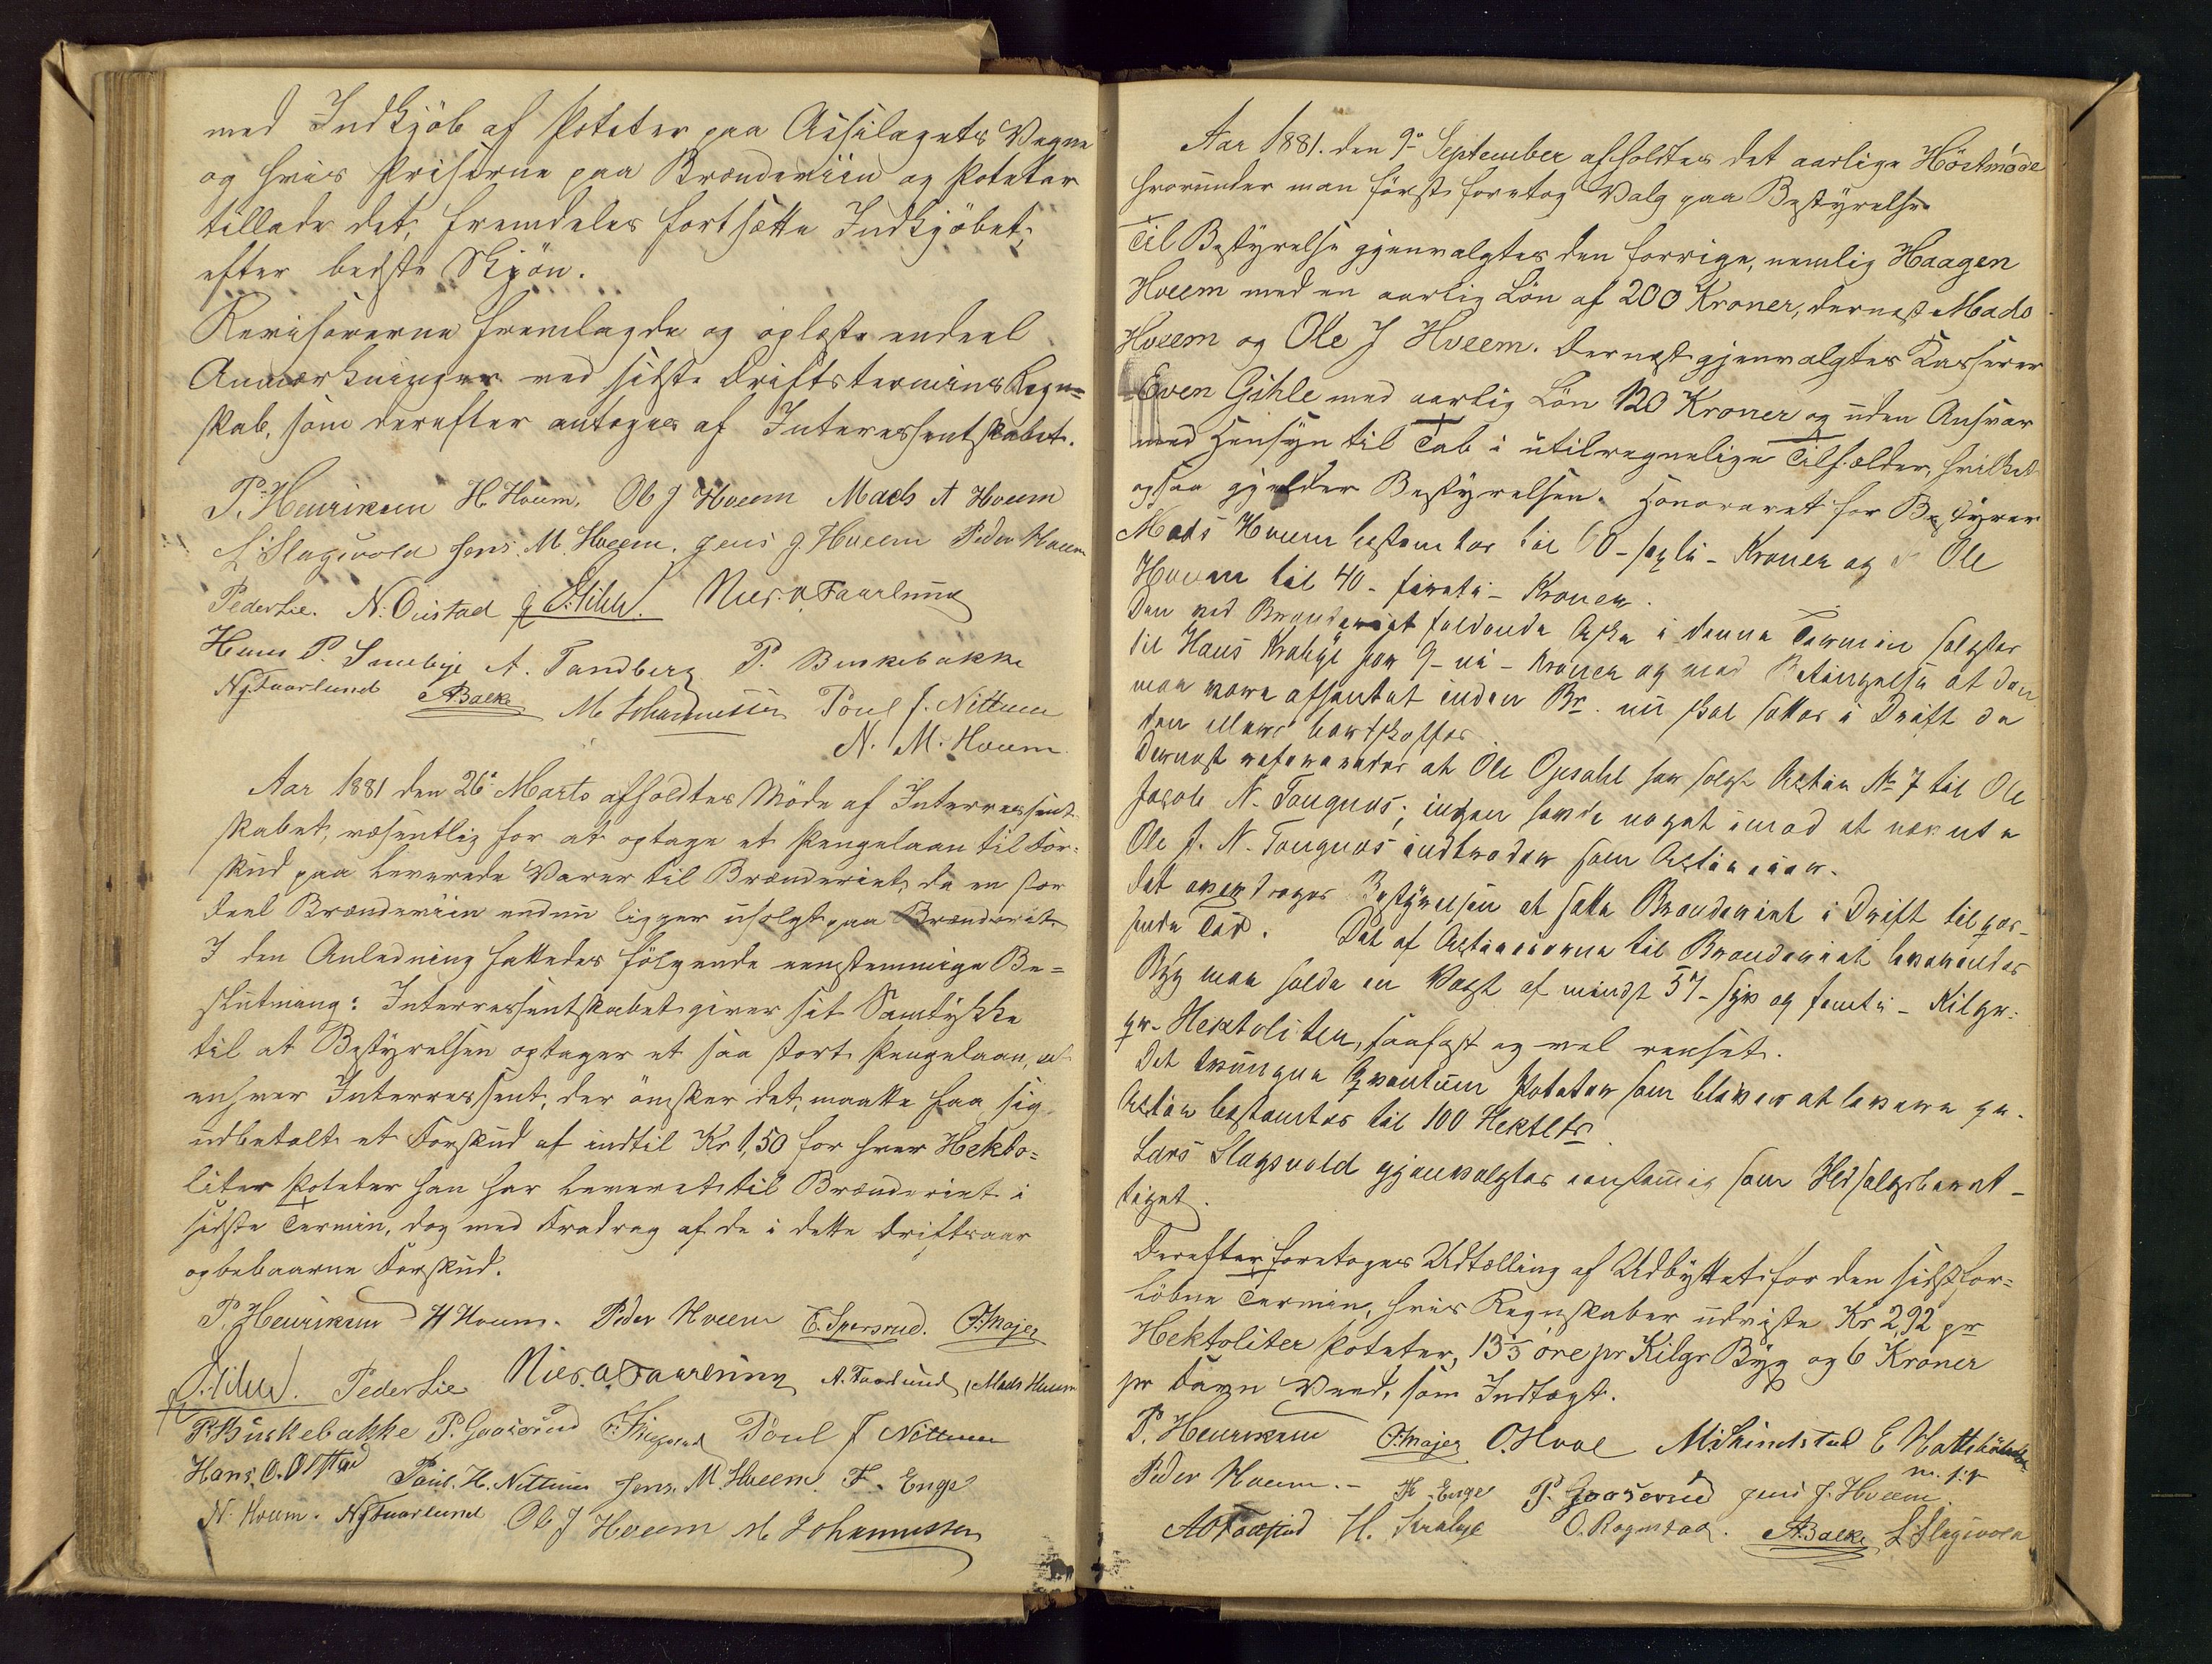 med Indkjöb af Poteter paa Axilagets Vegne
og hvis Priserne paa Brændeviin og Poteter
tillade det, fremdeles fortsætte Indkjöbet,
efter bedste Skjön.
Revisorerne fremlagde og oplæste endeel
Anmærkninger ved sidste Driftstermins Regn=
skab, som derefter antoges af Interessentskabet.
P. Henriksen H. Hveem. Ole J Hveem Mads A Hveem
L Slagsvold Jens. M. Hveem. Jens J. Hveem Peder Hveem
Peder Lie. N. Onstad E. Gihle. Niels. A Faarlung
Hans P. Smebye A. Tandberg P. Buskebakke
N J Faarlund A Balke M Johannessen Poul J. Nittum
N. M. Hveem.
Aar 1881 den 26' Marts afholdtes Möde af Interressent
skabet, væsentlig for at optage et Pengelaan til For=
skud paa leverede Varer til Brænderiet, da en stor
deel Brændeviin endnu ligger usolgt paa Brænderiet
I den Anledning fattedes fölgende eenstemmige Be=
slutning: Interressentskabet giver sit Samtykke
til at Bestyrelsen optager et saa stort Pengelaan, at
enhver Interressent, der önsker det, maatte faa sig
udbetalt et Forskud af indtil Kr 1,50 for hver Hekto=
liter Poteter han har leveret til Brænderiet i
sidste Termin, dog med Fradrag af de i dette Driftsaar
opbebaarne Forskud.
P. Henriksen H Hveem. Peder Hveem E. Spersrud. F. Majer
E. Gihle. Peder Lie Niels. A Faarlung A. Faarlund Mads Hveem
P. Buskebakke P. Gaasrud Poul J Nittum
Hans. O. Poul. H. Nittum Jens. M. Hveem. F. Enge
N. Hveem. N J Faarlund Ole J Hveem M. Johannessen
Aar 1881. den 9' September afholdtes det aarlige Höstmöde
hvorunder man först foretog Valg paa Bestyrelse
Til Bestyrelse gjenvalgtes den forrige, nemlig Haagen
Hveem med en aarlig Lön af 200 Kroner, dernest Mads
Hveem og Ole J Hveem. Dernest gjenvalgtes Kasserer
Even Gihle med aarlig Lön 120 Kroner og uden Ansvar
med Hensyn til Tab i utilregnelige Tilfælder, hvilket
ogsaa gjelder Bestyrelsen. Honoraret for Bestyrer
Mads Hveem bestemtes til 60 - sexti - Kroner og Ole
Hveem til 40 - fireti - Kroner.
Den ved Brænderiet faldende Aske i denne Termin solgtes
til Hans Krabye for 9 - ni - Kroner og med Betingelse at den
maa være afhentet inden Br. nu skal sættes i Drift da
den ellers bortskaffes.
Dernest refereredes at Ole Opsahl har solgt Actie No 7 til Ole
Jacob N. Tongnæs; ingen havde noget imod at nævnte
Ole J. N. Tongnæs indtræder som Actieeier.
Det overdroges Bestyrelsen at sætte Brænderiet i Drift til pas-
sende Tid. Det af Actieeierne til Brænderiet leverendes
Byg maa holde en Vægt af mindst 57 - syv og femti - Kilgr.
pr. Hektoliter, saafast og vel renset.
Det tvungne Qvantum Poteter som bliver at levere pr.
Actie bestemtes til 100 Hektltr.
Lars Slagsvold gjenvalgtes eenstemmig som Udsalgsberet-
tiget.
Derefter foretoges Udtælling af Udbyttet for den sidst for=
löbne Termin, hvis Regnskaber udviste Kr 2,92 pr
Hektoliter Poteter, 13 1/3 öre pr Kilgr Byg og 6 Kroner
pr Favn Veed, som Indtægt.
P. Henriksen F. Majer O. Hvoe M. Skindstad E Hattehölen
Peder Hveem. - F. Enge P. Gaasrud Jens J. Hveem. m. p. p
H. Krabye O. Rognstad. A Balke L Slagsvold